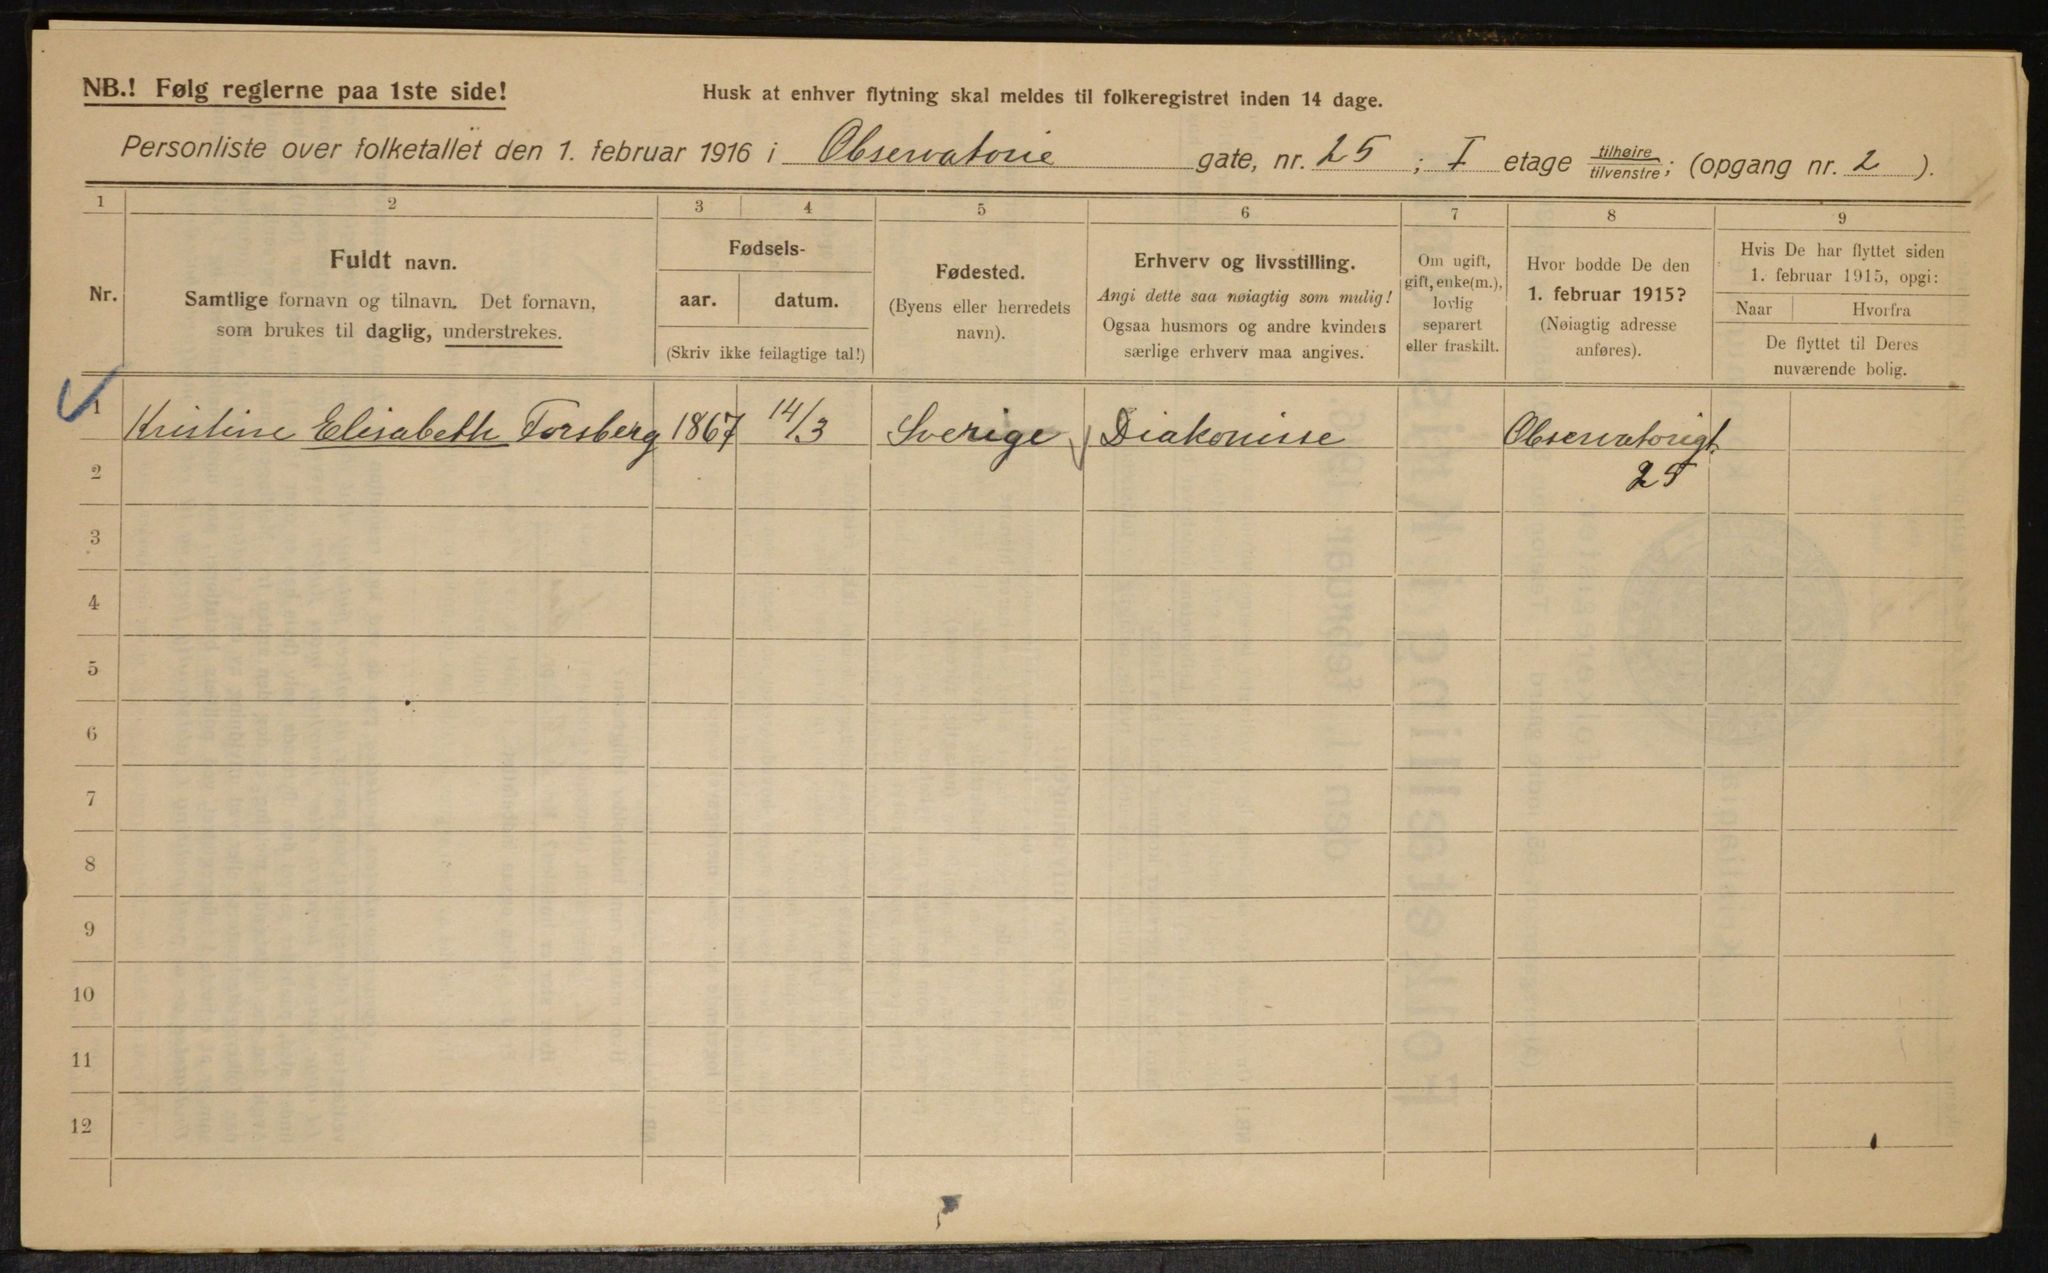 NB.! Følg reglerne paa 1ste side!
Husk at enhver flytning skal meldes til folkeregistret inden 14 dage.
Personliste over folketallet den 1. februar 1916 i Observatorie gate, nr. 25 ; I etage tilhøire/tilvenstre; (opgang nr. 2 ).
1 2 3 4 5 6 7 8 9
Nr.
Fuldt navn.
Samtlige fornavn og tilnavn. Det fornavn,
som brukes til daglig, understrekes.
Fødsels-
aar. datum.
(Skriv ikke feilagtige tal!)
Fødested.
(Byens eller herredets
navn).
Erhverv og livsstilling.
Angi dette saa nøiagtig som mulig!
Ogsaa husmors og andre kvinders
særlige erhverv maa angives.
Om ugift,
gift, enke(m.),
lovlig
separert
eller fraskilt.
Hvor bodde De den
1. februar 1915?
(Nøiagtig adresse
anføres).
Hvis De har flyttet siden
1. februar 1915, opgi:
Naar Hvorfra
De flyttet til Deres
nuværende bolig.
1 Kristine Elisabeth Forsberg 1867 14/3 Sverige Diakonisse Observatorigt.
25
2
3
4
5
6
7
8
9
10
11
12